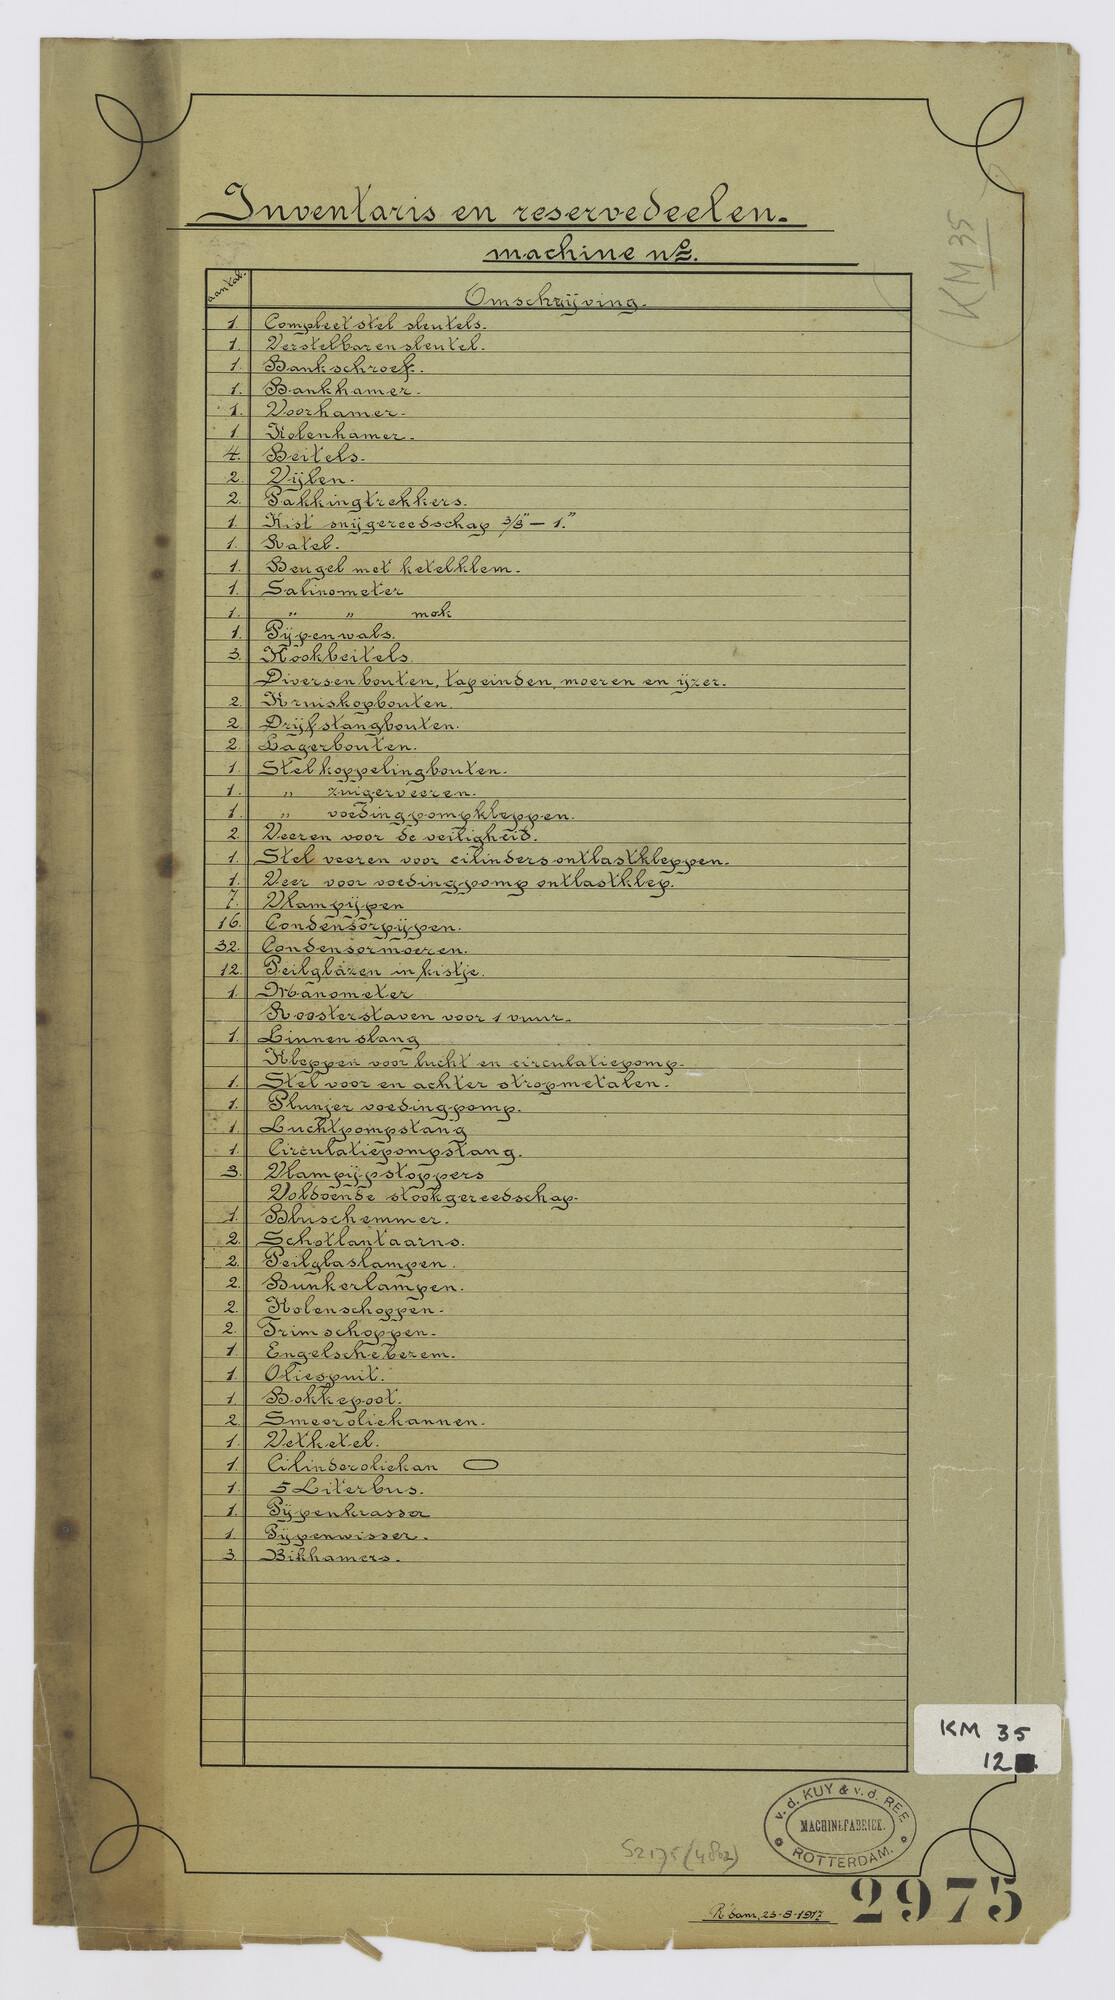 Inventaris en reservedeelen.
machine no.
aantal. Omschrijving.
1. Compleet stel sleutels.
1. Verstelbaren sleutel.
1. Bankschroef.
1. Bankhamer.
1. Voorhamer.
1. Kolenhamer.
4. Beitels.
2. Vijlen.
2. Pakkingtrekkers.
1. Kist snijgereedschap 3/8" — 1."
1. Ratel.
1. Beugel met ketelklem.
1. Salinometer
1. " " mok
1. Pijpenwals.
3. Kookbeitels
Diversen bouten, tapeinden, moeren en ijzer.
2. Kruiskopbouten.
2. Drijfstangbouten.
2. Lagerbouten.
1. Stel koppelingbouten.
1. " zuigerveeren.
1. " voedingpompkleppen.
2. Veeren voor de veiligheid.
1. Stel veeren voor cilinders ontlastkleppen.
1. Veer voor voedingpomp ontlastklep.
7. Vlampijpen
16. Condensorpijpen.
32. Condensormoeren.
12. Peilglazen in kistje.
1. Manometer
Roosterstaven voor 1 vuur.
1. Linnen slang
Kleppen voor lucht en circulatiepomp.
1. Stel voor en achter stropmetalen.
1. Plunjer voedingpomp.
1. Luchtpompstang
1. Circulatiepompstang.
3. Vlampijpstoppers
Voldoende stookgereedschap.
1. Bluschemmer.
2. Schotlantaarns.
2. Peilglaslampen.
2. Bunkerlampen.
2. Kolenschoppen.
2. Trimschoppen.
1 Engelsche bezem.
1. Oliespuit.
1. Bokkepoot.
2. Smeeroliekannen.
1. Vetketel.
1. Cilinderoliekan
1. 5 Literbus.
1. Pijpenkrasser
1. Pijpenwisser.
3. Bikhamers.
KM 35
KM 35
12
v.d. KUY & v.d. REE
MACHINEFABRIEK.
ROTTERDAM.
S2175 (4802)
R'dam, 23-8-1917
2975